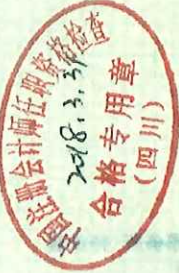 中国注册会计师任职资格检查
2018.3.31
合格专用章
(四川)